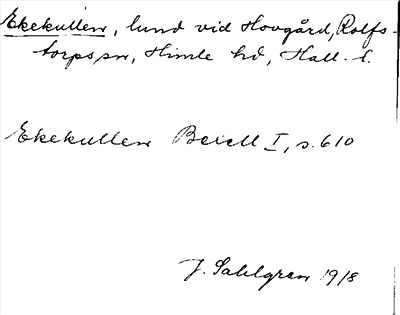 Ekekullen, lund vid Hovgård, Rolfs-
torps sn, Himle hd, Hall. l.
Ekekullen Bexell I, s. 610
J. Sahlgren 1918